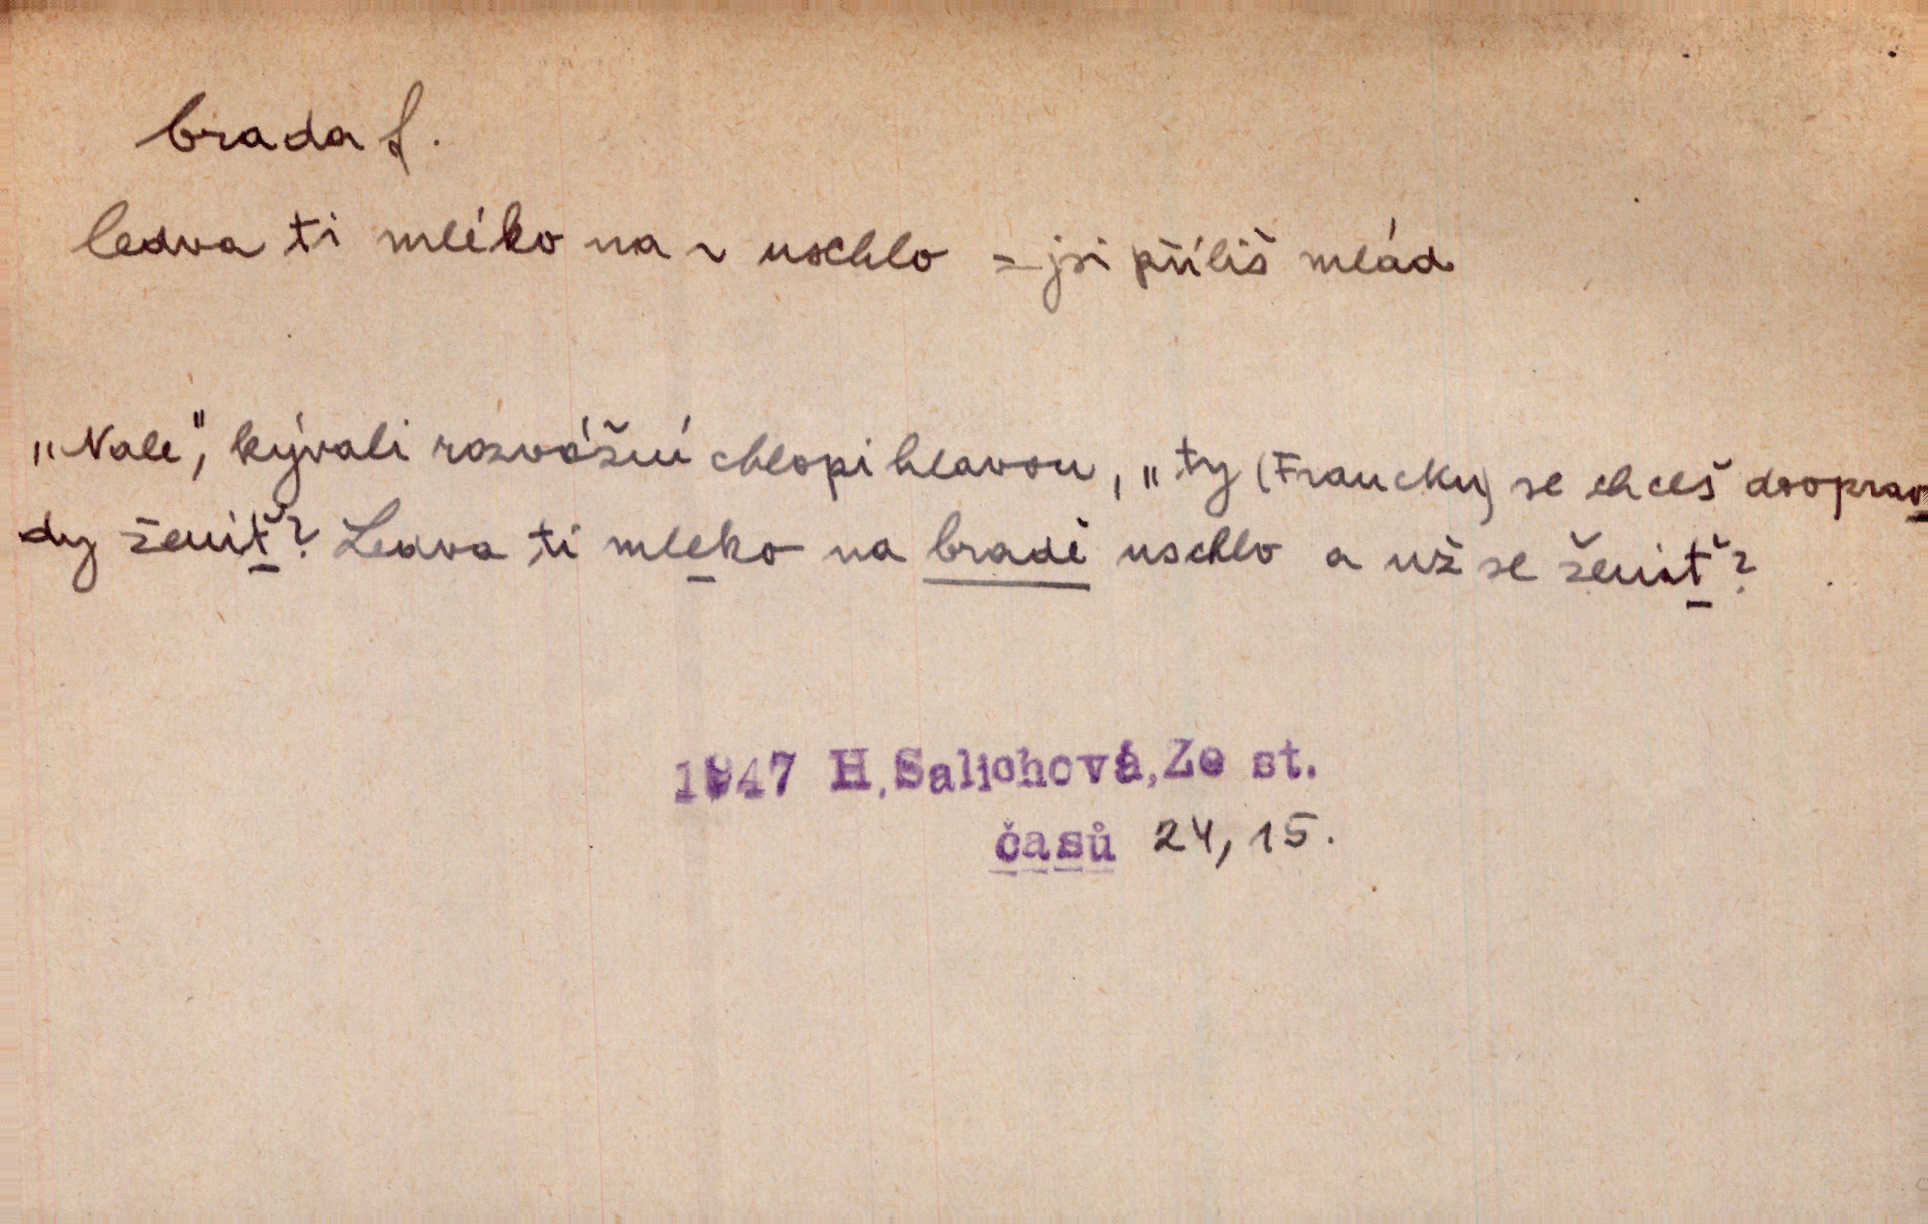 brada f.
ledva ti mléko na ~ uschlo = jsi příliš mlád
„Nale", kývali rozvážní chlopi hlavou, „ty (Francku) se chceš dooprav
dy ženiť? Ledva ti mleko na bradě uschlo a už se ženiť?
1947 H.Salichová,Ze st.
časů 24, 15.